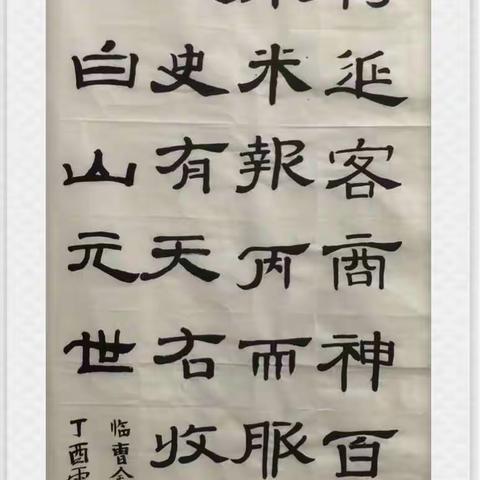 延客商神百
米報丙而服
史有天右收
白山元世
临曹全
丁酉